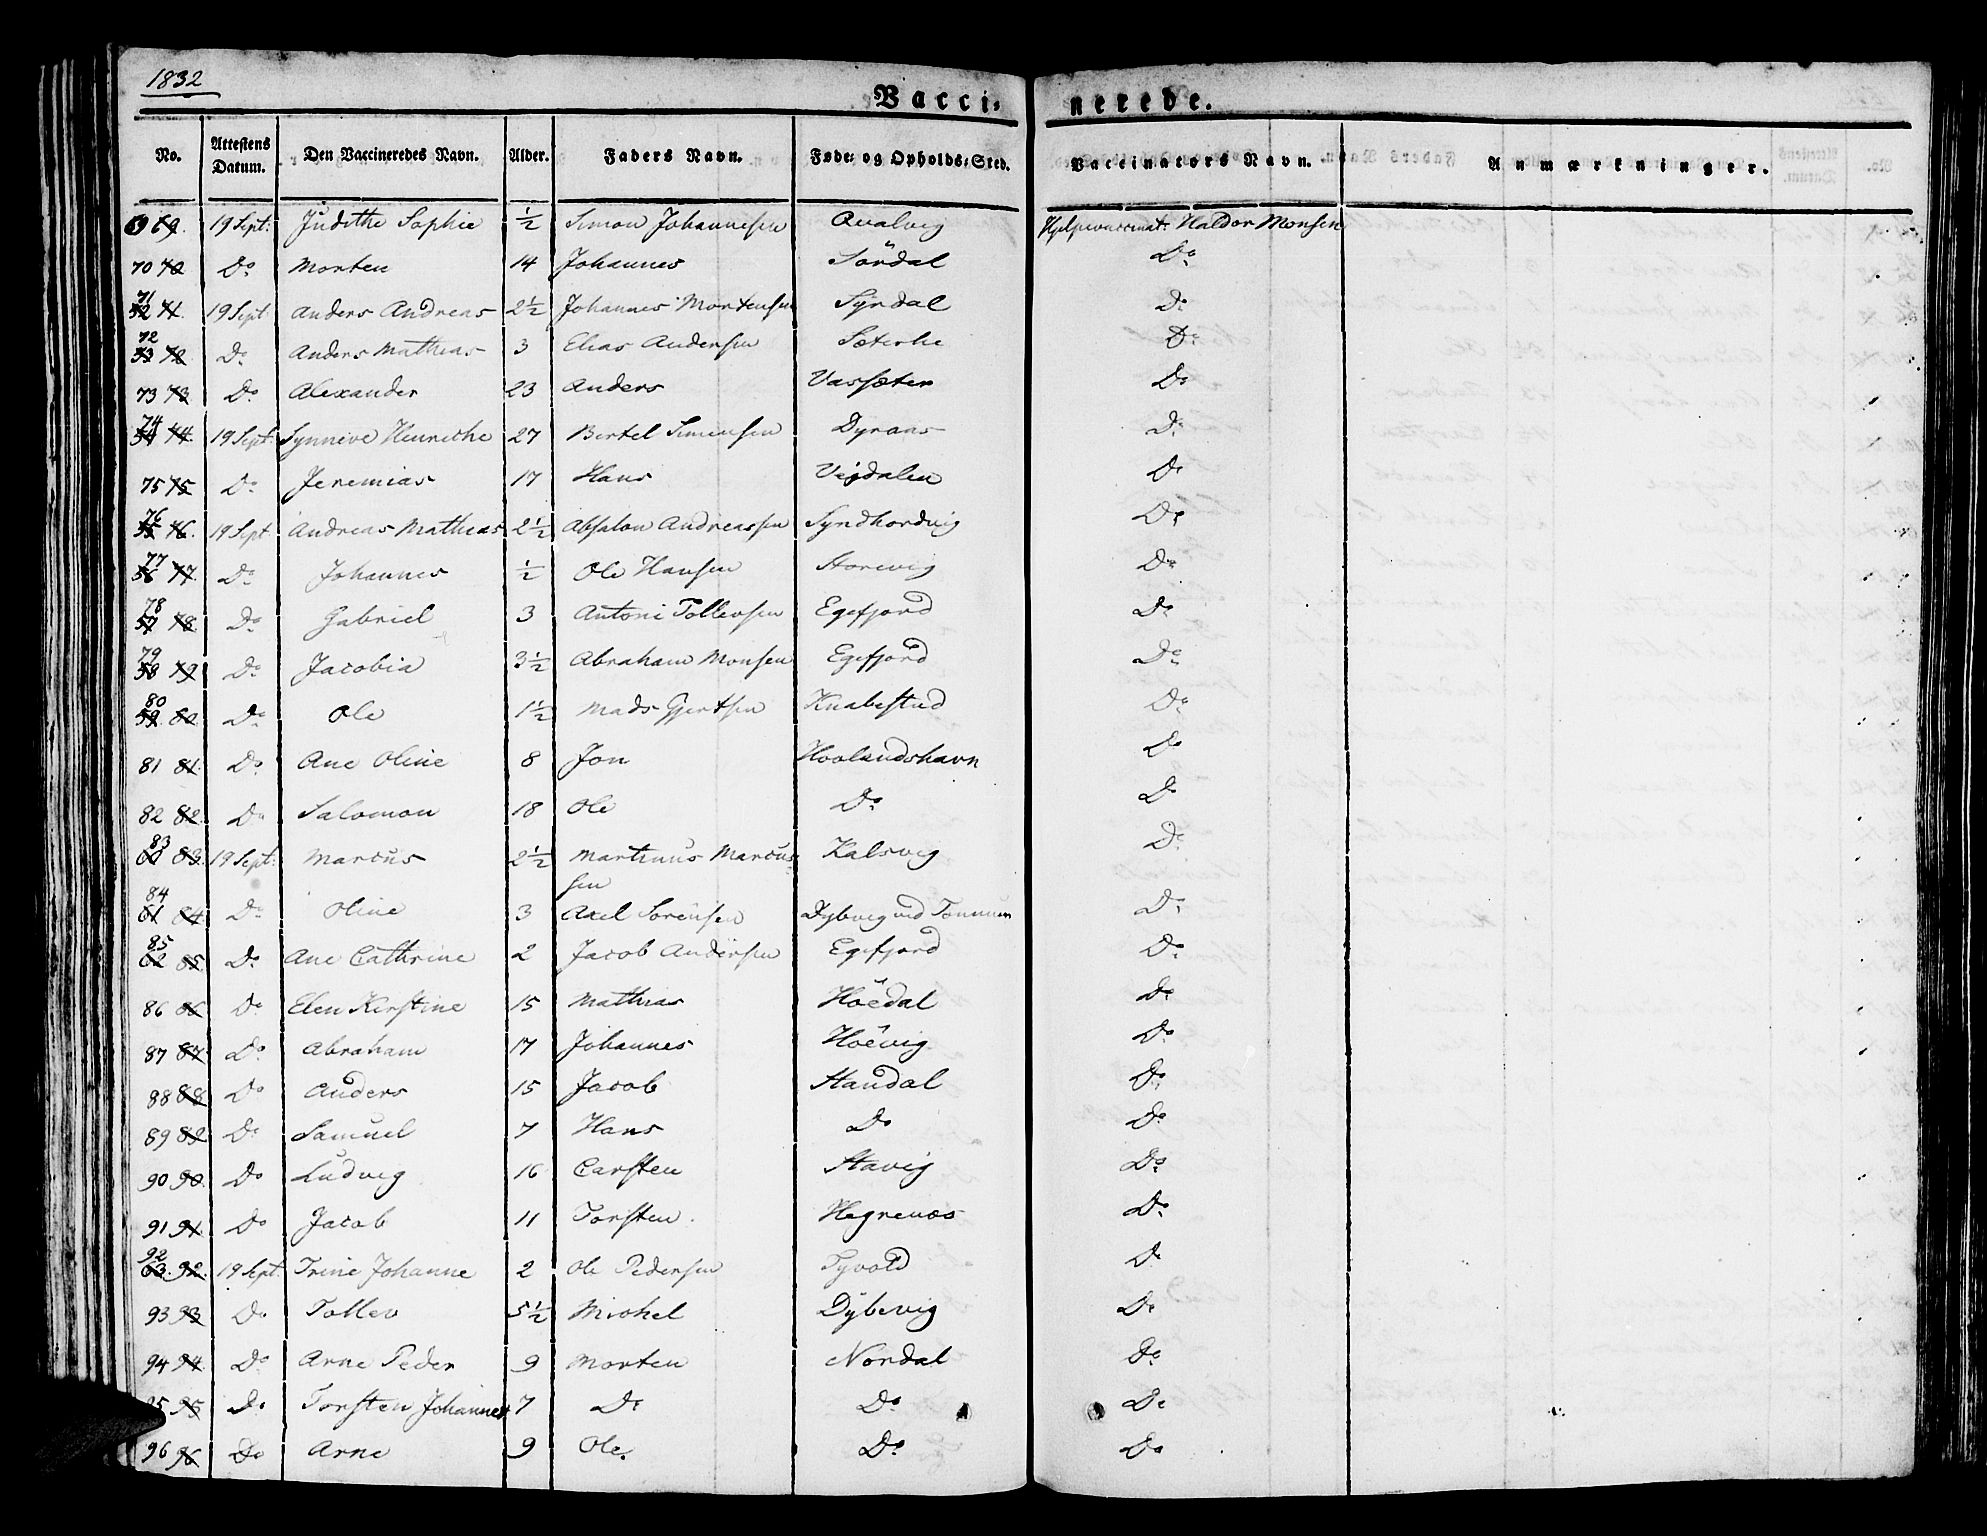 1832
Vaccinerede.
No. Attestens Datum. Den Vaccineredes Navn. Alder. Faders Navn. Føde- og Opholds-Sted. Vaccinators Navn. Anmærkninger.
69 69. 19 Sept: Judithe Sophie ½ Simon Johannesen Qvalvig Hjelpevaccinat: Haldor Monsen
70 70 Do Morten 14 Johannes Sördal Do
71 52 71. 19 Sept: Anders Andreas 2½ Johannes Mortensen Syrdal Do
72 53 72 Do Anders Mathias 3 Elias Andersen Do
73 73 Do Alexander 23 Anders Vassæter Do
74 54 74. 19 Sept: Synneve Henricthe 27 Bertel Simensen Dyraas Do
75 75 Do Jeremias 17 Hans Vejdalen Do
76 55 76. 19 Sept Andreas Mathias 2½ Absalon Andreassen Syndhordvig Do
77 56 77. Do Johannes ½ Ole Hansen Storevig Do
78 57 78. Do Gabriel 3 Antoni Tollevsen Egefjord Do
79 58 79. Do Jacobia 3½ Abraham Monsen Egefjord Do
80 59 80. Do Ole 1½ Mads Gjertsen Knabestad Do
81 81. Do Ane Oline 8 Jon Hovlandshavn Do
82 82. Do Salomon 18 Ole Do Do
83 60 83. 19 Sept: Marcus 2½ Martinus Marcus- Kalsvig Do
sen
84 61 84. Do Oline 3 Axel Sorensen Dybvig ved Do
85 62 85. Do Ane Cathrine 2 Jacob Andersen Egefjord Do
86 86 Do Elen Kirstine 15 Mathias Höedal Do
87 87 Do Abraham 17 Johannes Höevig Do
88 88 Do Anders 15 Jacob Standal Do
89 89 Do Samuel 7 Hans Do Do
90 90. Do Ludvig 16 Carsten Stavig Do
91 91. Do Jacob 11 Torsten. Hegrenæs Do
92 63. 92. 19 Sept: Trine Johanne 2 Ole Pedersen Tyvold Do
93 93 Do Tollev 5½ Michel Dybevig Do
94 94. Do Arne Peder 9 Morten Nordal Do
95 95 Do Torsten Johannes 7 Do Do Do
96 96 Do Arne 9 Ole. Do Do